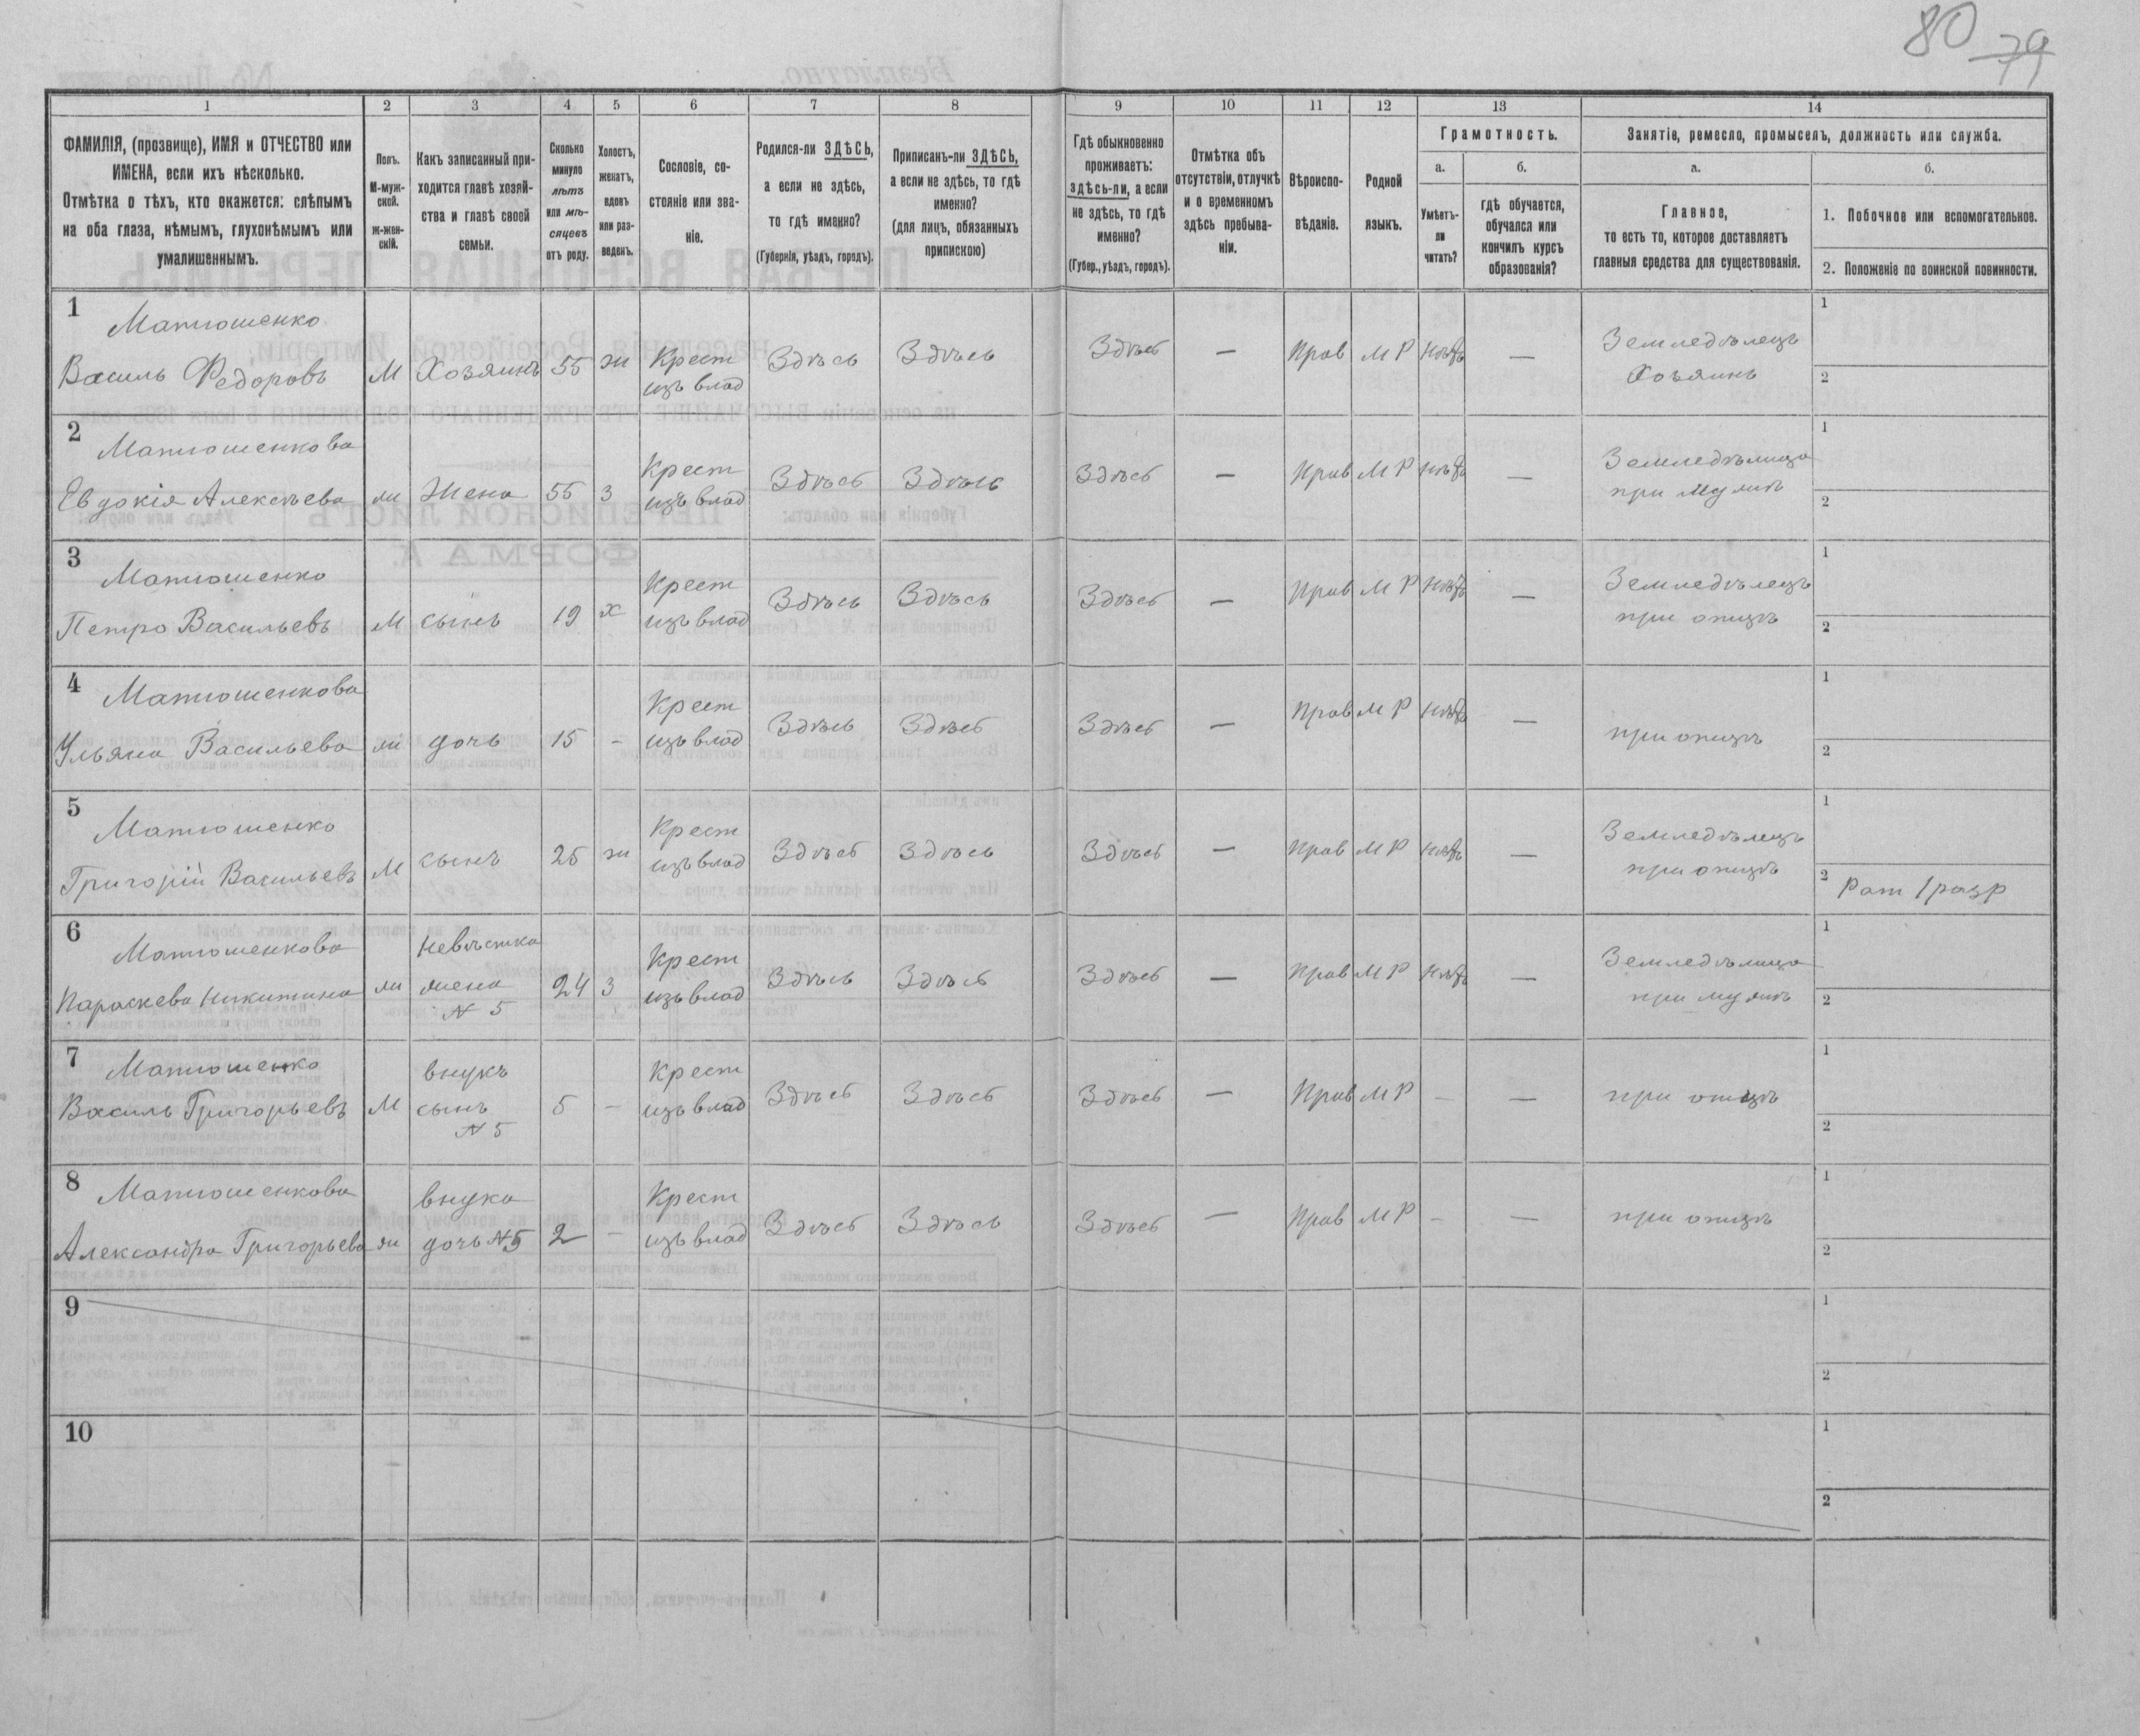 80 79
1 2 3 4 5 6 7 8 9 10 11 12 13 14
ФАМИЛІЯ, (прозвище), ИМЯ и ОТЧЕСТВО или
ИМЕНА, если ихъ нѣсколько.
Отмѣтка о тѣхъ, кто окажется: слѣпымъ
на оба глаза, нѣмымъ, глухонѣмымъ или
умалишеннымъ.
Полъ.
М-муж-
ской.
Ж-жен-
скій.
Какъ записанный при-
ходится главѣ хозяй-
ства и главѣ своей
семьи.
Сколько
минуло
лѣтъ
или мѣ-
сяцевъ
отъ роду.
Холостъ,
женатъ,
вдовъ
или раз-
веденъ.
Сословіе, со-
стояніе или зва-
ніе.
Родился-ли ЗДѢСЬ,
а если не здѣсь,
то гдѣ именно?
(Губернія, уѣздъ, городъ).
Приписанъ-ли ЗДѢСЬ,
а если не здѣсь, то гдѣ
именно?
(для лицъ, обязанныхъ
припискою)
Гдѣ обыкновенно
проживаетъ:
здѣсь-ли, а если
не здѣсь, то гдѣ
именно?
(Губер., уѣздъ, городъ).
Отмѣтка объ
отсутствіи, отлучкѣ
и о временномъ
здѣсь пребыва-
ніи.
Вѣроиспо-
вѣданіе.
Родной
языкъ.
Грамотность.
а.
Умѣетъ-
ли
читать?
б.
гдѣ обучается,
обучался или
кончилъ курсъ
образованія?
Занятіе, ремесло, промыселъ, должность или служба.
а.
Главное,
то есть то, которое доставляетъ
главныя средства для существованія.
б.
1. Побочное или вспомогательное.
2. Положеніе по воинской повинности.
1
Матюшенко
Василь Федоровъ М Хозяинъ 55 ж Крест Здѣсь Здѣсь Здѣсь — Прав М Р Нѣтъ — Земледѣлецъ 1
изъ влад Хозяинъ 2
2
Матюшенкова
Евдокія Алексѣева ж Жена 55 З Крест Здѣсь Здѣсь Здѣсь — Прав М Р Нѣтъ — Земледѣлица 1
изъ влад при мужѣ 2
3
Матюшенко
Петро Васильевъ М сынъ 19 х Крест Здѣсь Здѣсь Здѣсь — Прав М Р Нѣтъ — Земледѣлецъ 1
изъ влад при отцѣ 2
4
Матюшенкова
Ульяна Васильева ж дочь 15 – Крест Здѣсь Здѣсь Здѣсь — Прав М Р Нѣтъ — при отцѣ 1
изъ влад 2
5
Матюшенко
Григорій Васильевъ М сынъ 25 ж Крест Здѣсь Здѣсь Здѣсь — Прав М Р Нѣтъ — Земледѣлецъ 1
изъ влад при отцѣ 2 Рат 1 разр
6
Матюшенкова невѣстка
Параскева Никитина ж жена 24 З Крест Здѣсь Здѣсь Здѣсь — Прав М Р Нѣтъ — Земледѣлица 1
N 5 изъ влад при мужѣ 2
7
Матюшенко внукъ
Василь Григорьевъ М сынъ 5 – Крест Здѣсь Здѣсь Здѣсь — Прав М Р – — при отцѣ 1
N 5 изъ влад 2
8
Матюшенкова внука
Александра Григорьева ж дочь N5 2 – Крест Здѣсь Здѣсь Здѣсь — Прав М Р – — при отцѣ 1
изъ влад 2
9 1
2
10 1
2